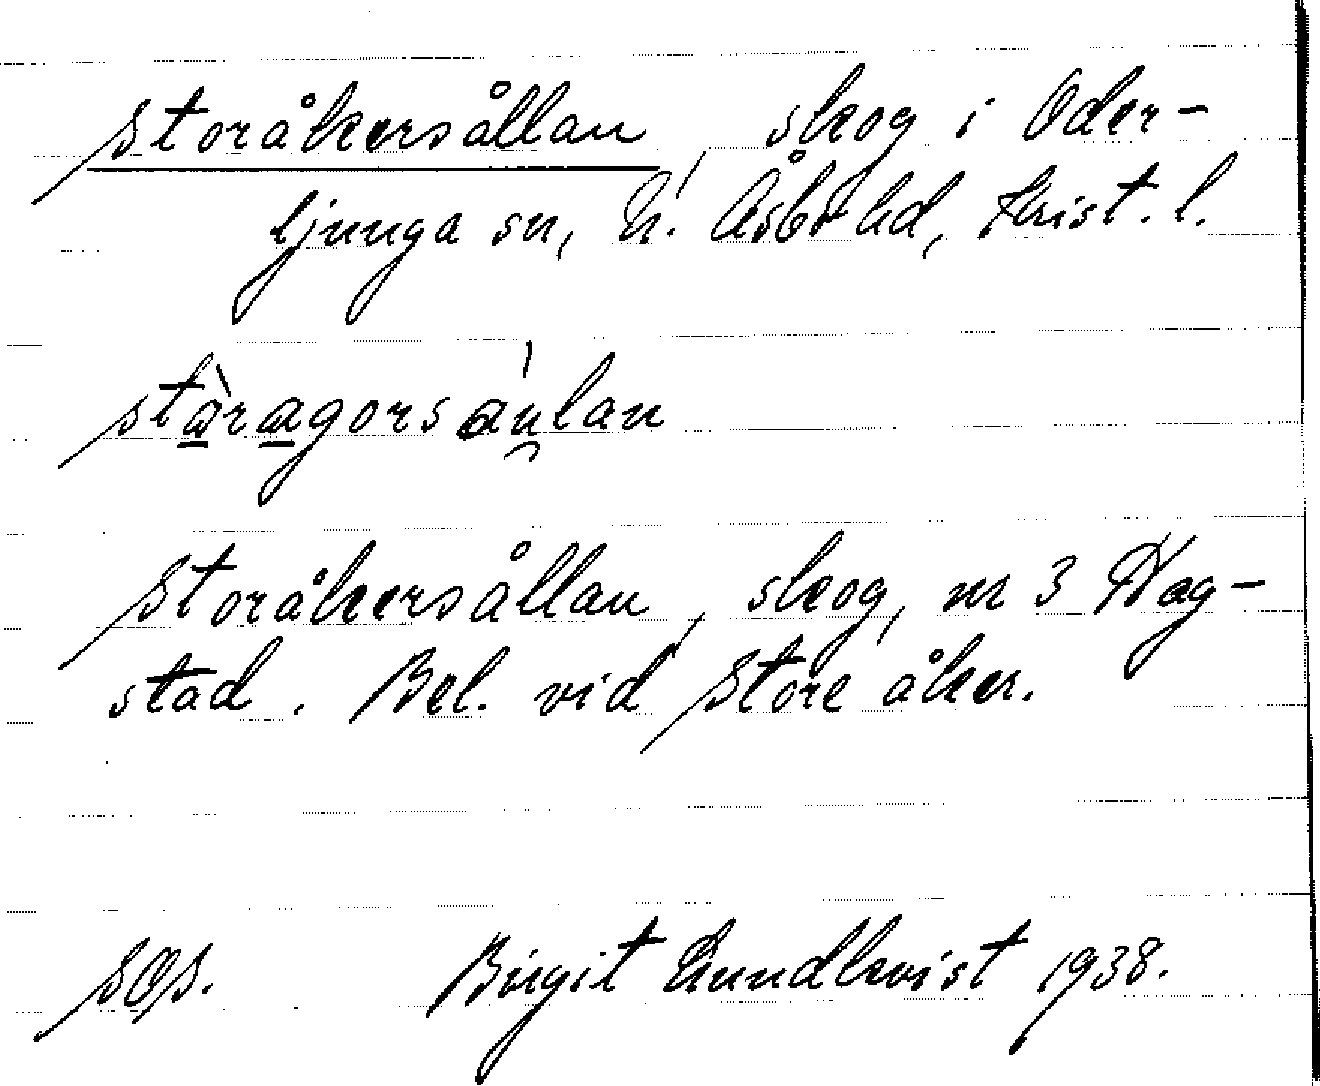 Storåkersållan, skog i Oder-
ljunga sn, N. Åsbo hd, Krist. l.
stàragorsáu̯lan
Storåkersållan, skog, nr 3 Hag-
stad. Bel. vid Store åker.
SOS. Birgit Lundkvist 1938.